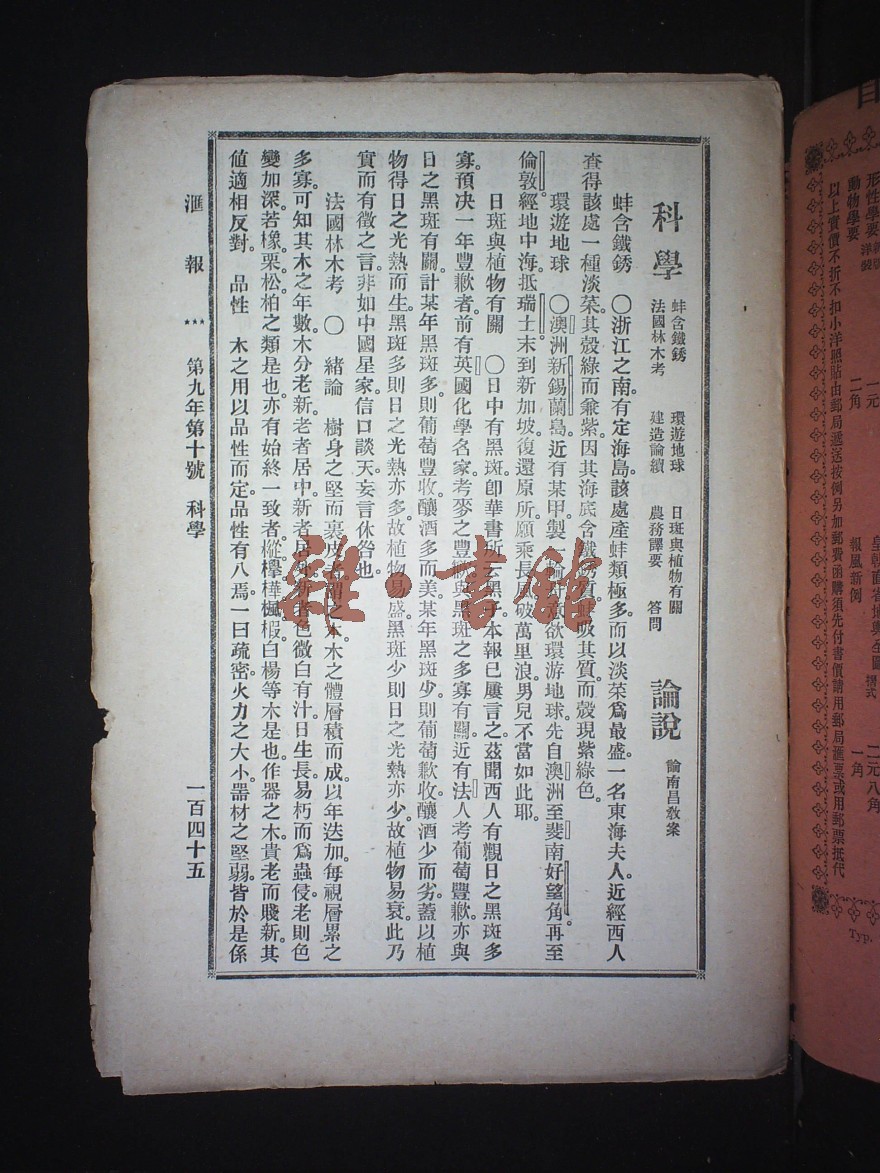 科學
蚌含鐵銹 環遊地球 日斑與植物有關
法國林木考 建造論續 農務譯要 答問
論說
論南昌教案
蚌含鐵銹 〇浙江之南有定海島。該處產蚌類極多。而以淡菜爲最盛。一名東海夫人。近經西人
查得該處一種淡菜。其殼綠而兼紫。因其海底含鐵銹質。蚌吸其質。而殼現紫綠色。
環遊地球 〇澳洲新錫蘭島。近有某甲。製一輪 欲環游地球。先自澳洲至斐南好望角。再至
倫敦。經地中海。抵瑞士。末到新加坡。復還原所。願乘長風破萬里浪。男兒不當如此耶。
日斑與植物有關 〇日中有黑斑。卽華書所云黑子。本報已屢言之。茲聞西人有觀日之黑斑多
寡。預决一年豐歉者。前有英國化學名家。考麥之豐歉。與黑斑之多寡有關。近有法人考葡萄豐歉。亦與
日之黑斑有關。計某年黑斑多。則葡萄豐收。釀酒多而美。某年黑斑少。則葡萄歉收。釀酒少而劣。蓋以植
物得日之光熱而生。黑斑多則日之光熱亦多。故植物易盛。黑斑少則日之光熱亦少。故植物易衰。此乃
實而有徵之言。非如中國星家。信口談天。妄言休咎也。
法國林木考 〇 緒論 樹身之堅而裹皮者。謂之木。木之體層積而成。以年迭加。每視層累之
多寡。可知其木之年數。木分老新。老者居中。新者居外。新者色微白有汁。日生長。易朽而爲蟲侵。老則色
變加深。若橡。栗。松。柏之類是也。亦有始終一致者。樅。櫸。樺。楓。椵。白楊等木是也。作器之木。貴老而賤新。其
値適相反對。 品性 木之用以品性而定。品性有八焉。一曰疏密。火力之大小。器材之堅弱。皆於是係
滙報 *** 第九年第十號 科學 一百四十五
雜·書館
形性學要
動物學要
洋裝
一元
二角
以上實價不折不扣小洋照貼由郵局遞送按例另加郵費函購須先付書價請用郵局滙票或用郵票抵代
報風新例
二元八角
一角
Typ.